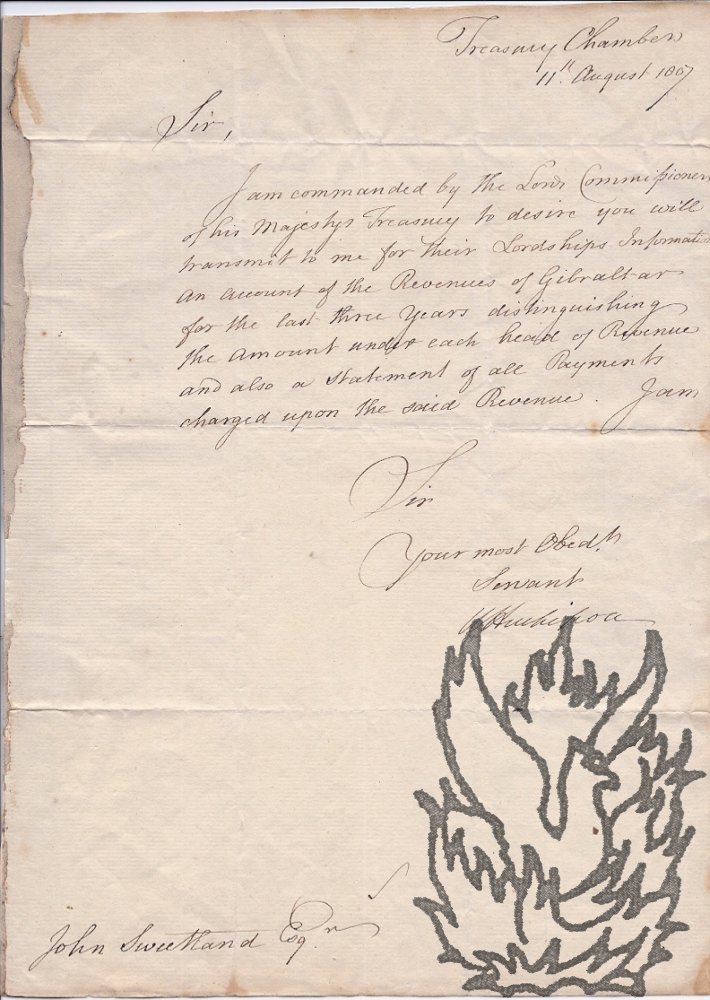 Treasury Chambers
11th August 1807
Sir,
I am commanded by the Lords Commissioners
of his Majestys Treasury to desire you will
transmit to me for their Lordships Information
an account of the Revenues of Gibraltar
for the last three Years distinguishing
the Amount under each head of Revenue
and also a Statement of all Payments
charged upon the said Revenue. I am
Sir
Your most Obedt
Servant
W Huskisson
John Sweetland Esqr